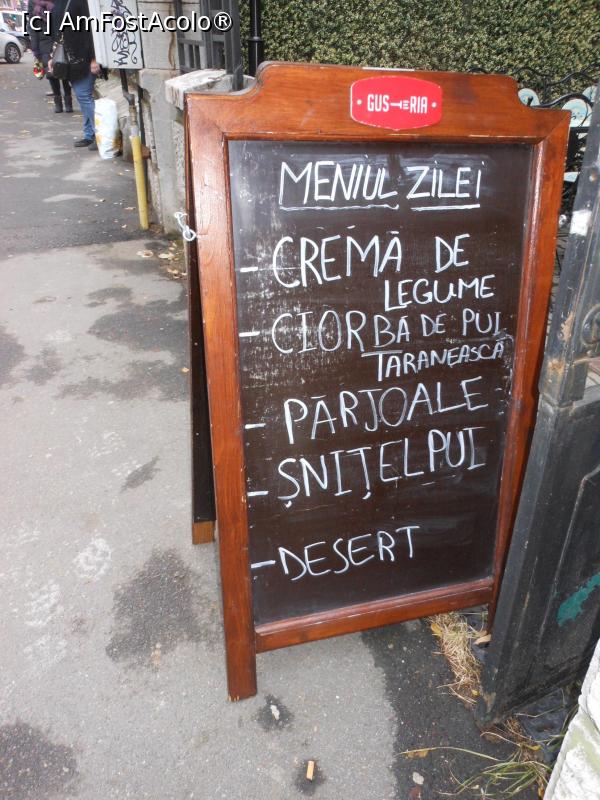 [c] AmFostAcolo®
GUSTERIA
MENIUL ZILEI
- CREMĂ DE
LEGUME
- CIORBĂ DE PUI
ȚARANEASCĂ
- PĂRJOALE
- ȘNIȚEL PUI
- DESERT